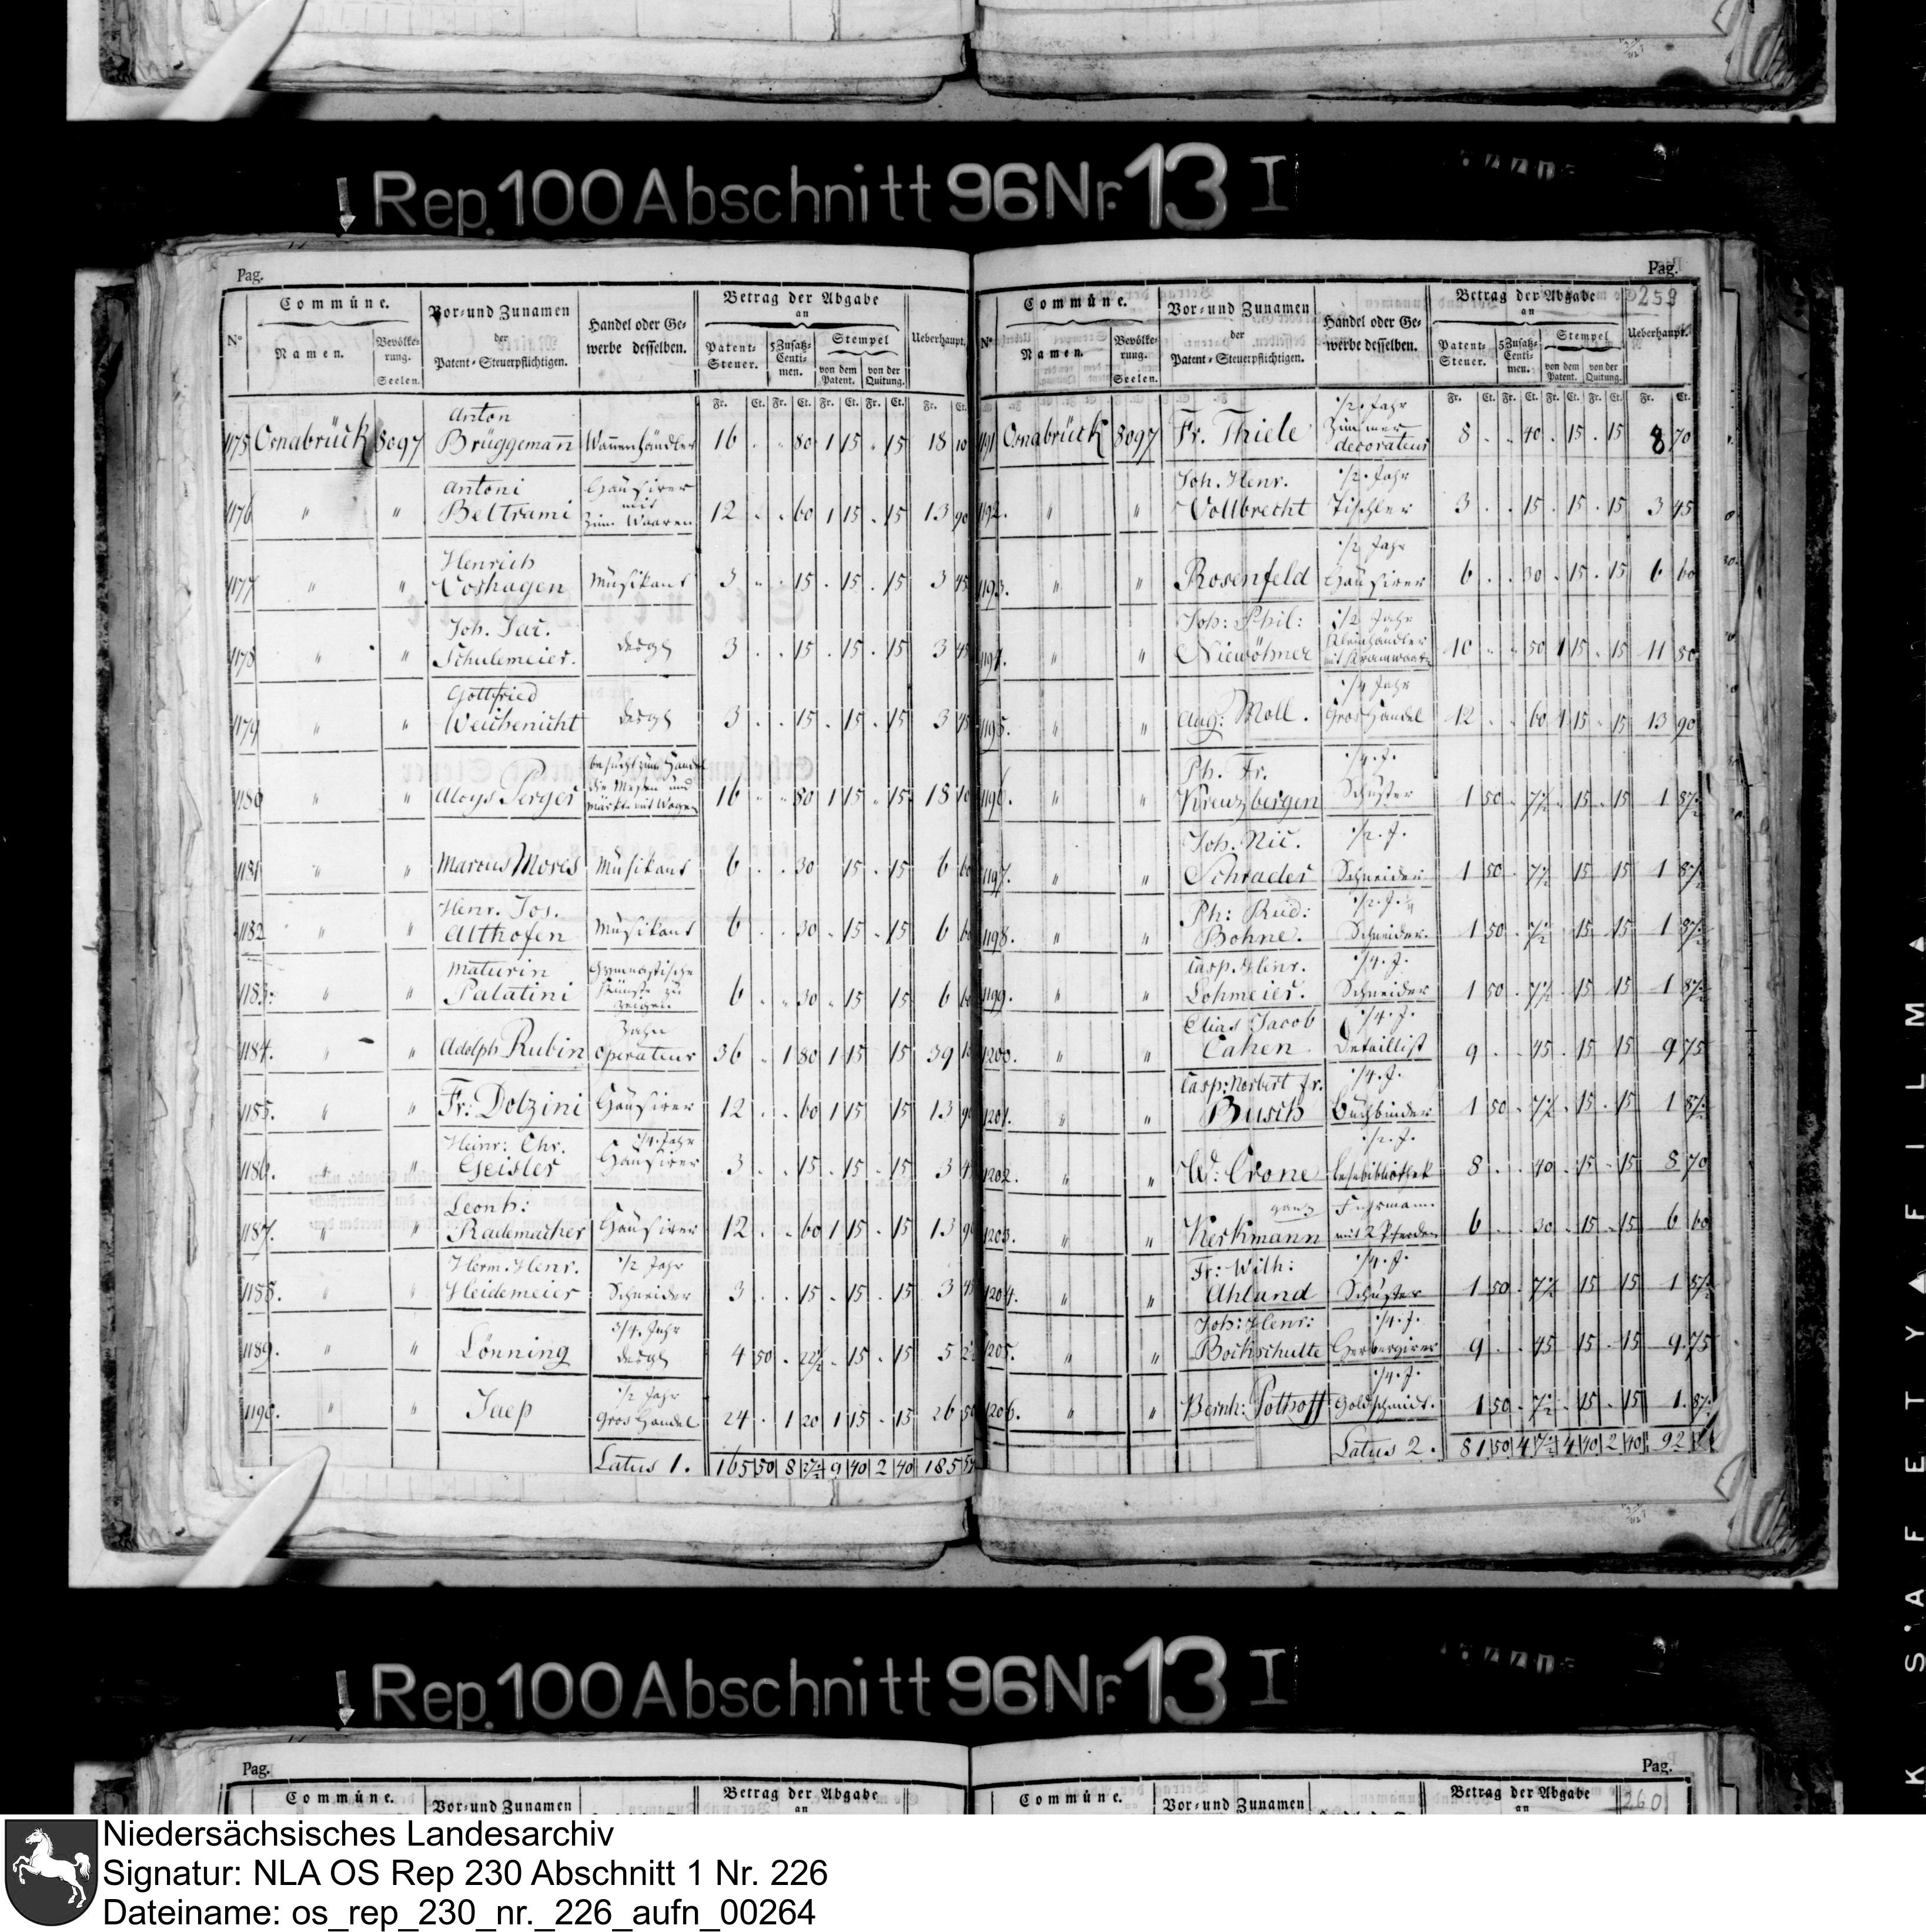 Rep. 100 Abschnitt 96 Nr. 13 I
Pag.
N°
Commüne.
Namen.
Bevölke-
rung.
Seelen.
Vor- und Zunamen
der
Patent-Steuerpflichtigen.
Handel oder Ge-
werbe desselben.
Betrag der Abgabe
an
Patent-
Steuer.
5 Zusatz-
Centi-
men.
Stempel
von dem
Patent.
von der
Quitung.
Ueberhaupt.
Fr. Ct. Fr. Ct. Fr. Ct. Fr. Ct. Fr. Ct.
1175 Osnabrück 8097 Anton
Brüggemann̄ Wan̄enhändler 16 . . 80 1 15 . 15 18 10
1176 " " Antoni
Beltrami Hausirer
mit
Waaren 12 . . 60 1 15 . 15 13 90
1177 " " Henrich
Voshagen Musikant 3 . . 15 . 15 . 15 3 45
1178 " " Joh. Jac.
Schulemeier. desgl 3 . . 15 . 15 . 15 3 45
1179 " " Gottfried
Weichenicht desgl 3 . . 15 . 15 . 15 3 45
1180 " " Aloys Perger besucht zum Handel
die Messen und
Märkte mit Wagen 16 . . 80 1 15 . 15 18 10
1181 " " Marcus Moses Musikant 6 . . 30 15 . 15 6 60
1182 " " Henr. Jos.
Althofen Musikant 6 . . 30 . 15 . 15 6 60
1183. " " Maturin
Palatini Gymnastische
Künste zu
zeigen 6 . . 30 . 15 15 6 60
1184. " " Adolph Rubin Zahn
Operateur 36 . 1 80 1 15 15 39 10
1185. " " Fr: Dolzini Hausirer 12 . . 60 1 15 15 13 90
1186. " " Heinr: Chr.
Geisler 1/4. Jahr
Hausirer 3 . . 15 . 15 . 15 3 45
1187. " " Leonh:
Rademacher Hausirer 12 . . 60 1 15 . 15 13 90
1188. " " Herm. Henr.
Heidemeier 1/2 Jahr
Schneider 3 . . 15 . 15 . 15 3 45
1189. " " Lönning 3/4. Jahr
desgl 4 50 . 22½ . 15 . 15 5
1190. " " Jaep 1/2 Jahr
Gros Handel 24 . 1 20 1 15 . 15 26 50
Latus 1. 165 50 8 27½ 9 40 2 40 185
Pag.
259
N°
Commüne.
Namen.
Bevölke-
rung.
Seelen.
Vor- und Zunamen
der
Patent-Steuerpflichtigen.
Handel oder Ge-
werbe desselben.
Betrag der Abgabe
an
Patent-
Steuer.
5 Zusatz-
Centi-
men.
Stempel
von dem
Patent.
von der
Quitung.
Ueberhaupt.
Fr. Ct. Fr. Ct. Fr. Ct. Fr. Ct. Fr. Ct.
1191 Osnabrück 8097 Fr. Thiele 1/2. Jahr
Zimmer
decorateur 8 . . 40 . 15 . 15 8 70
1192. " " Joh. Henr.
Vollbrecht 1/2. Jahr
Tischler 3 . . 15 . 15 . 15 3 45
1193. " " Rosenfeld 1/2 Jahr
Hausirer 6 . . 30 . 15 . 15 6 60
1194. " " Joh: Phil:
Niewöhner 1/2 Jahr
Kleinhändler
mit Kramwaaren 10 . . 50 1 15 . 15 11 80
1195. " " Aug: Moll. 1/4 Jahr
Gros Handel 12 . . 60 1 15 . 15 13 90
1196. " " Ph. Fr.
Kreuzbergen 1/4. J.
Schuster 1 50 . 7½ . 15 . 15 1 87½
1197. " " Joh. Nic.
Schrader 1/2. J.
Schneider 1 50 . 7½ 15 15 1 87½
1198. " " Ph: Rud:
Bohne. 1/2. J.
Schneider. 1 50 . 7½ 15 15 1 87½
1199. " " Casp. Henr.
Lohmeier. 1/4. J.
Schneider 1 50 . 7½ . 15 15 1 87½
1200. " " Elias Jacob
Cahen. 1/4. J.
Detaillist 9 . . 45 . 15 15 9 75
1201. " " Casp: Norbert Fr.
Busch 1/4. J.
Buchbinder 1 50 . 7½ . 15 . 15 1 87½
1202. " " W: Crone 1/2. J.
Lesebibliothek 8 . . 40 . 15 . 15 8 70
1203. " " ganz
Kerkmann Fuhrmann.
mit 2 Pferden 6 . . 30 . 15 . 15 6 60
1204. " " Fr: Wilh:
Ahlund 1/4. J.
Schuster 1 50 . 7½ 15 15 1 87½
1205. " " Joh: Henr:
Bockschulte 1/4. J.
Herbergirer 9 . . 45 15 . 15 9. 75
1206. " " Bernh: Pothoff 1/4. J.
Goldschmidt. 1 50 . 7½ . 15 15 1. 87½
Latus 2. 81 50 4 7½ 4 40 2 40 92
Rep. 100 Abschnitt 96 Nr. 13 I
Pag.
Commüne.
Vor- und Zunamen
Betrag der Abgabe
an
Pag.
Commüne.
Vor- und Zunamen
Betrag der Abgabe
an
260
K SAFETY ▲ FILM ▲
Niedersächsisches Landesarchiv
Signatur: NLA OS Rep 230 Abschnitt 1 Nr. 226
Dateiname: os_rep_230_nr._226_aufn_00264